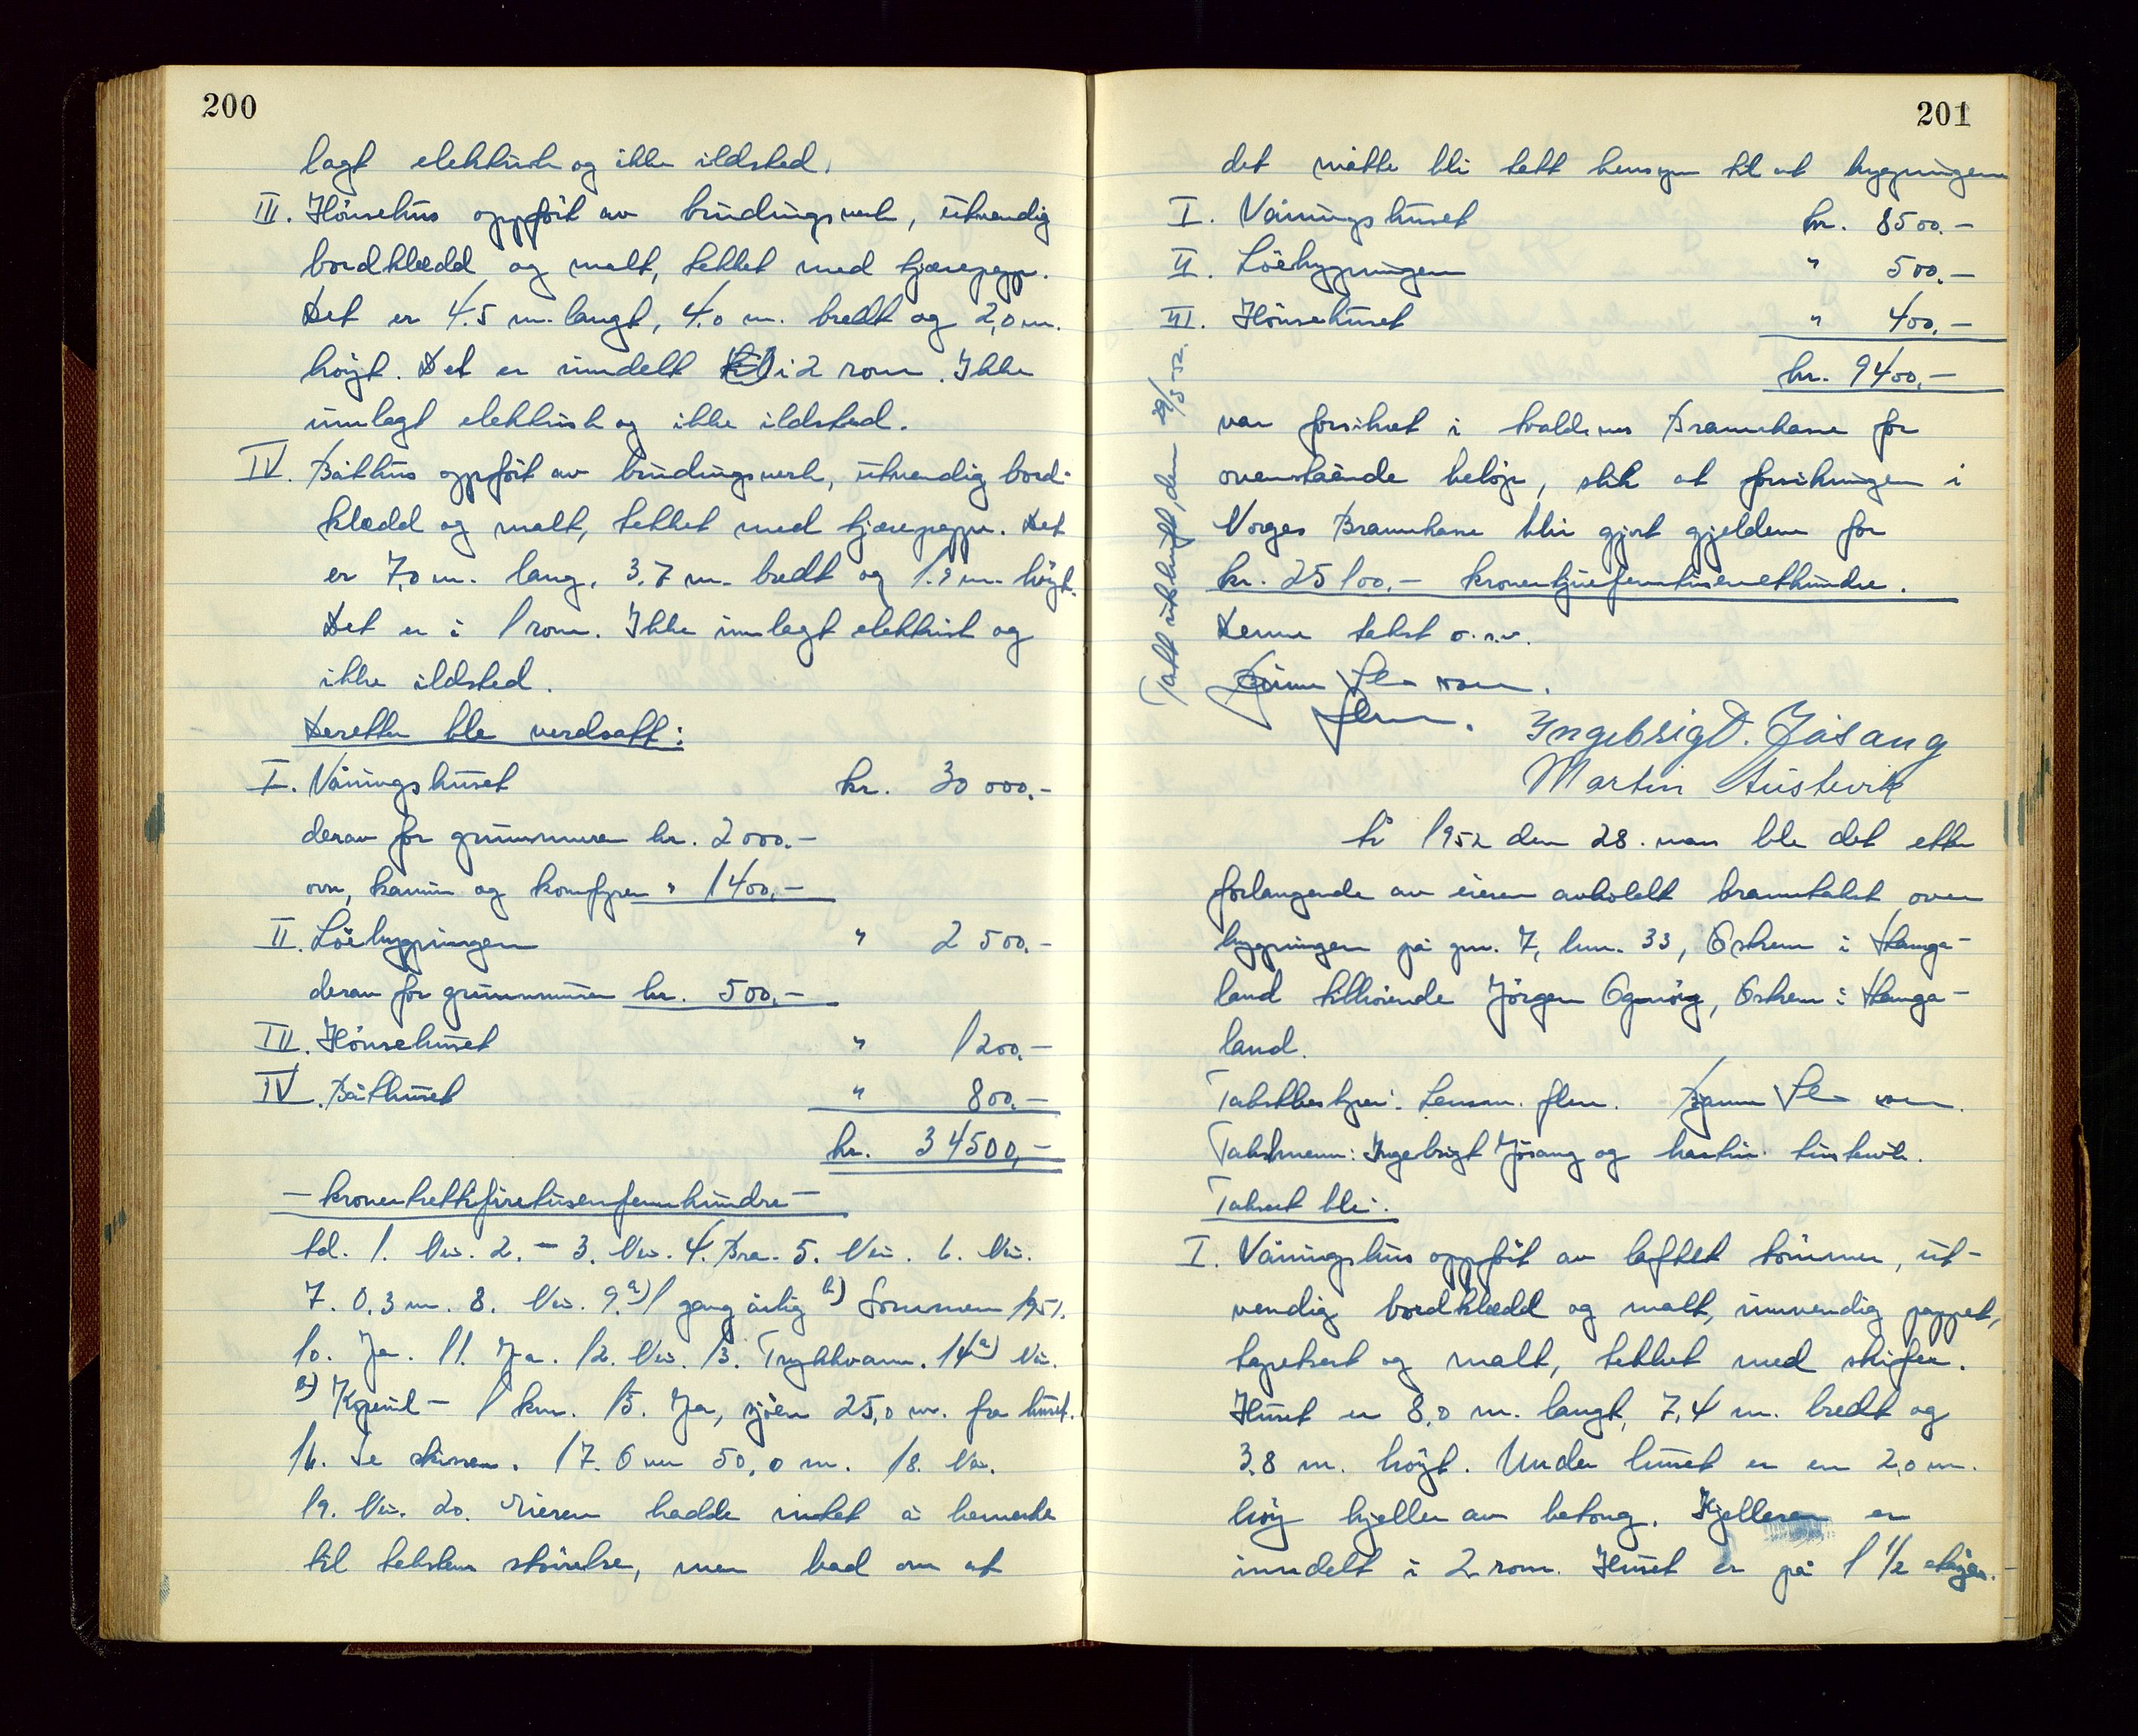 200
lagt elektrisk og ikke ildsted.
III. Hönsehus oppfört av bindingsverk, utvendig
bordkledd og malt, tekket med tjærepapp.
Det er 4.5 m. langt, 4.0 m. bredt og 2,0 m.
höyt. Det er inndelt i 2 rom. Ikke
innlagt elektrisk og ikke ildsted.
IV. Båthus oppfört av bindingsverk, utvendig bord-
kledd og malt, tekket med tjærepapp. Det
er 7,0 m. lang, 3.7 m. bredt og 1.9 m. höyt.
Det er i 1 rom. Ikke innlagt elektrisk og
ikke ildsted.
Deretter ble verdsatt:
I. Våningshuset kr. 30 000.-
derav for grunnmuren kr. 2000.-
ovn, kamin og komfyren " 1400.-
II. Löebygningen " 2 500.-
derav for grunnmuren kr. 500.-
III. Hönsehuset " 1200.-
IV. Båthuset " 800.-
kr. 34500,-
- kronertrettifiretusenfemhundre -
td. 1. Nei. 2. - 3. Nei. 4. Bra. 5. Nei. 6. Nei.
7. 0.3 m. 8. Nei. 9. a) 1 gang årlig b) Sommeren 1951.
10. Ja. 11. Ja. 12. Nei. 13. Trykkvann. 14 a) Nei.
b) Kopervik - 1 km. 15. Ja, sjöen 25,0 m. fra huset.
16. Se skissen. 17. Over 50,0 m. 18. Nei.
19. Nei. 20. Eieren hadde intet å bemerke
til takstens störrelse, men bad om at
201
det måtte bli tatt hensyn til at bygningene
I. Våningshuset kr. 8500.-
II. Löebygningen " 500.-
III. Hönsehuset " 400.-
kr. 9400.-
var forsikret i Brannkasse for
ovenstående belöp, slik at forsikringen i
Norges Brannkasse blir gjort gjeldene for
kr. 25100.- kronertjuefemtusenetthundre.
Denne takst o.s.v.
Tatt utskrift, den 29/3 52.
Ingebrigt. Jøsang
Martin Austevik
År 1952 den 28. mars ble det etter
forlangende av eieren avholdt branntakst over
bygningen på gnr. 7, bnr. 33, Östrem i Skånga-
land tilhörende Jörgen Ognöy, Östrem i Skånga-
land.
Takstbestyrer: Lensm. flm.
Takstmenn: Ingebrigt Jösang og Martin Austevik.
Taksert ble:
I. Våningshus oppfört av laftet tömmer, ut-
vendig bordkledd og malt, innvendig pappet,
tapetsert og malt, tekket med skifer.
Huset er 8,0 m. langt, 7,4 m. bredt og
3,8 m. höyt. Under huset er en 2,0 m.
höy kjeller av betong. Kjelleren er
inndelt i 2 rom. Huset er på 1 1/2 etasje.